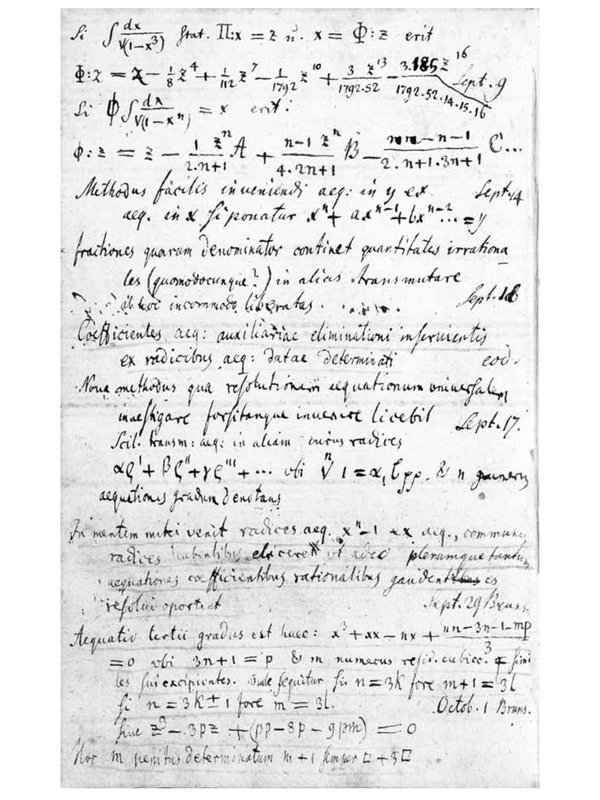 Si ∫ dx/√(1-x³) stat. Π:x = z u. x = Φ:z erit
Φ:z = z - 1/8 z⁴ + 1/112 z⁷ - 1/1792 z¹⁰ + 3 z¹³/1792.52 - 3.185 z¹⁶/1792.52.14.15.16 Sept. 9
Si Φ ∫ dx/√(1-xⁿ) = x erit:
Φ:z = z - 1 zⁿ/2.n+1 A + n-1 zⁿ/4.2n+1 B - nn-n-1/2.n+1.3n+1 C...
Methodus facilis inveniendi aeq: in y ex Sept. 14
aeq. in x si ponatur xⁿ + axⁿ⁻¹ + bxⁿ⁻² ... = y
fractiones quarum denominator continet quantitates irrationa
les (quomodocunque?) in alias transmutare
ab hoc incommodo liberatas. Sept. 16
Coefficientes aeq: auxiliariae eliminationi inservientis
ex radicibus aeq: datae determinati eod.
Nova methodus qua resolutionem aequationum universalem
investigare forsitanque invenire licebit Sept. 17.
Scil. transm: aeq: in aliam cuius radices
αϱ' + βϱ'' + γϱ''' + ... ubi ⁿ√1 = α, β, γ pp. & n numerus
aequationis gradum denotans
In mentem mihi venit radices aeq. xⁿ-1 ex aeq., communes
radices habentibus elicere ut adeo plerumque tantum
aequationes coefficientibus rationalibus gaudentes
resolvi oporteat Sept. 29 Bruns.
Aequatio tertii gradus est haec: x³ + xx - nx + nn-3n-1-mp/3
= 0 ubi 3n+1 = p & m numerus resid. cubic. simi
les sui excipientes. Unde sequitur si n = 3k fore m+1 = 3l
si n = 3k ± 1 fore m = 3l. Octob. 1 Bruns.
Sive z³ - 3pz + (pp - 8p - 9pm) = 0
Hoc m penitus determinatum m+1 semper □ + 3□